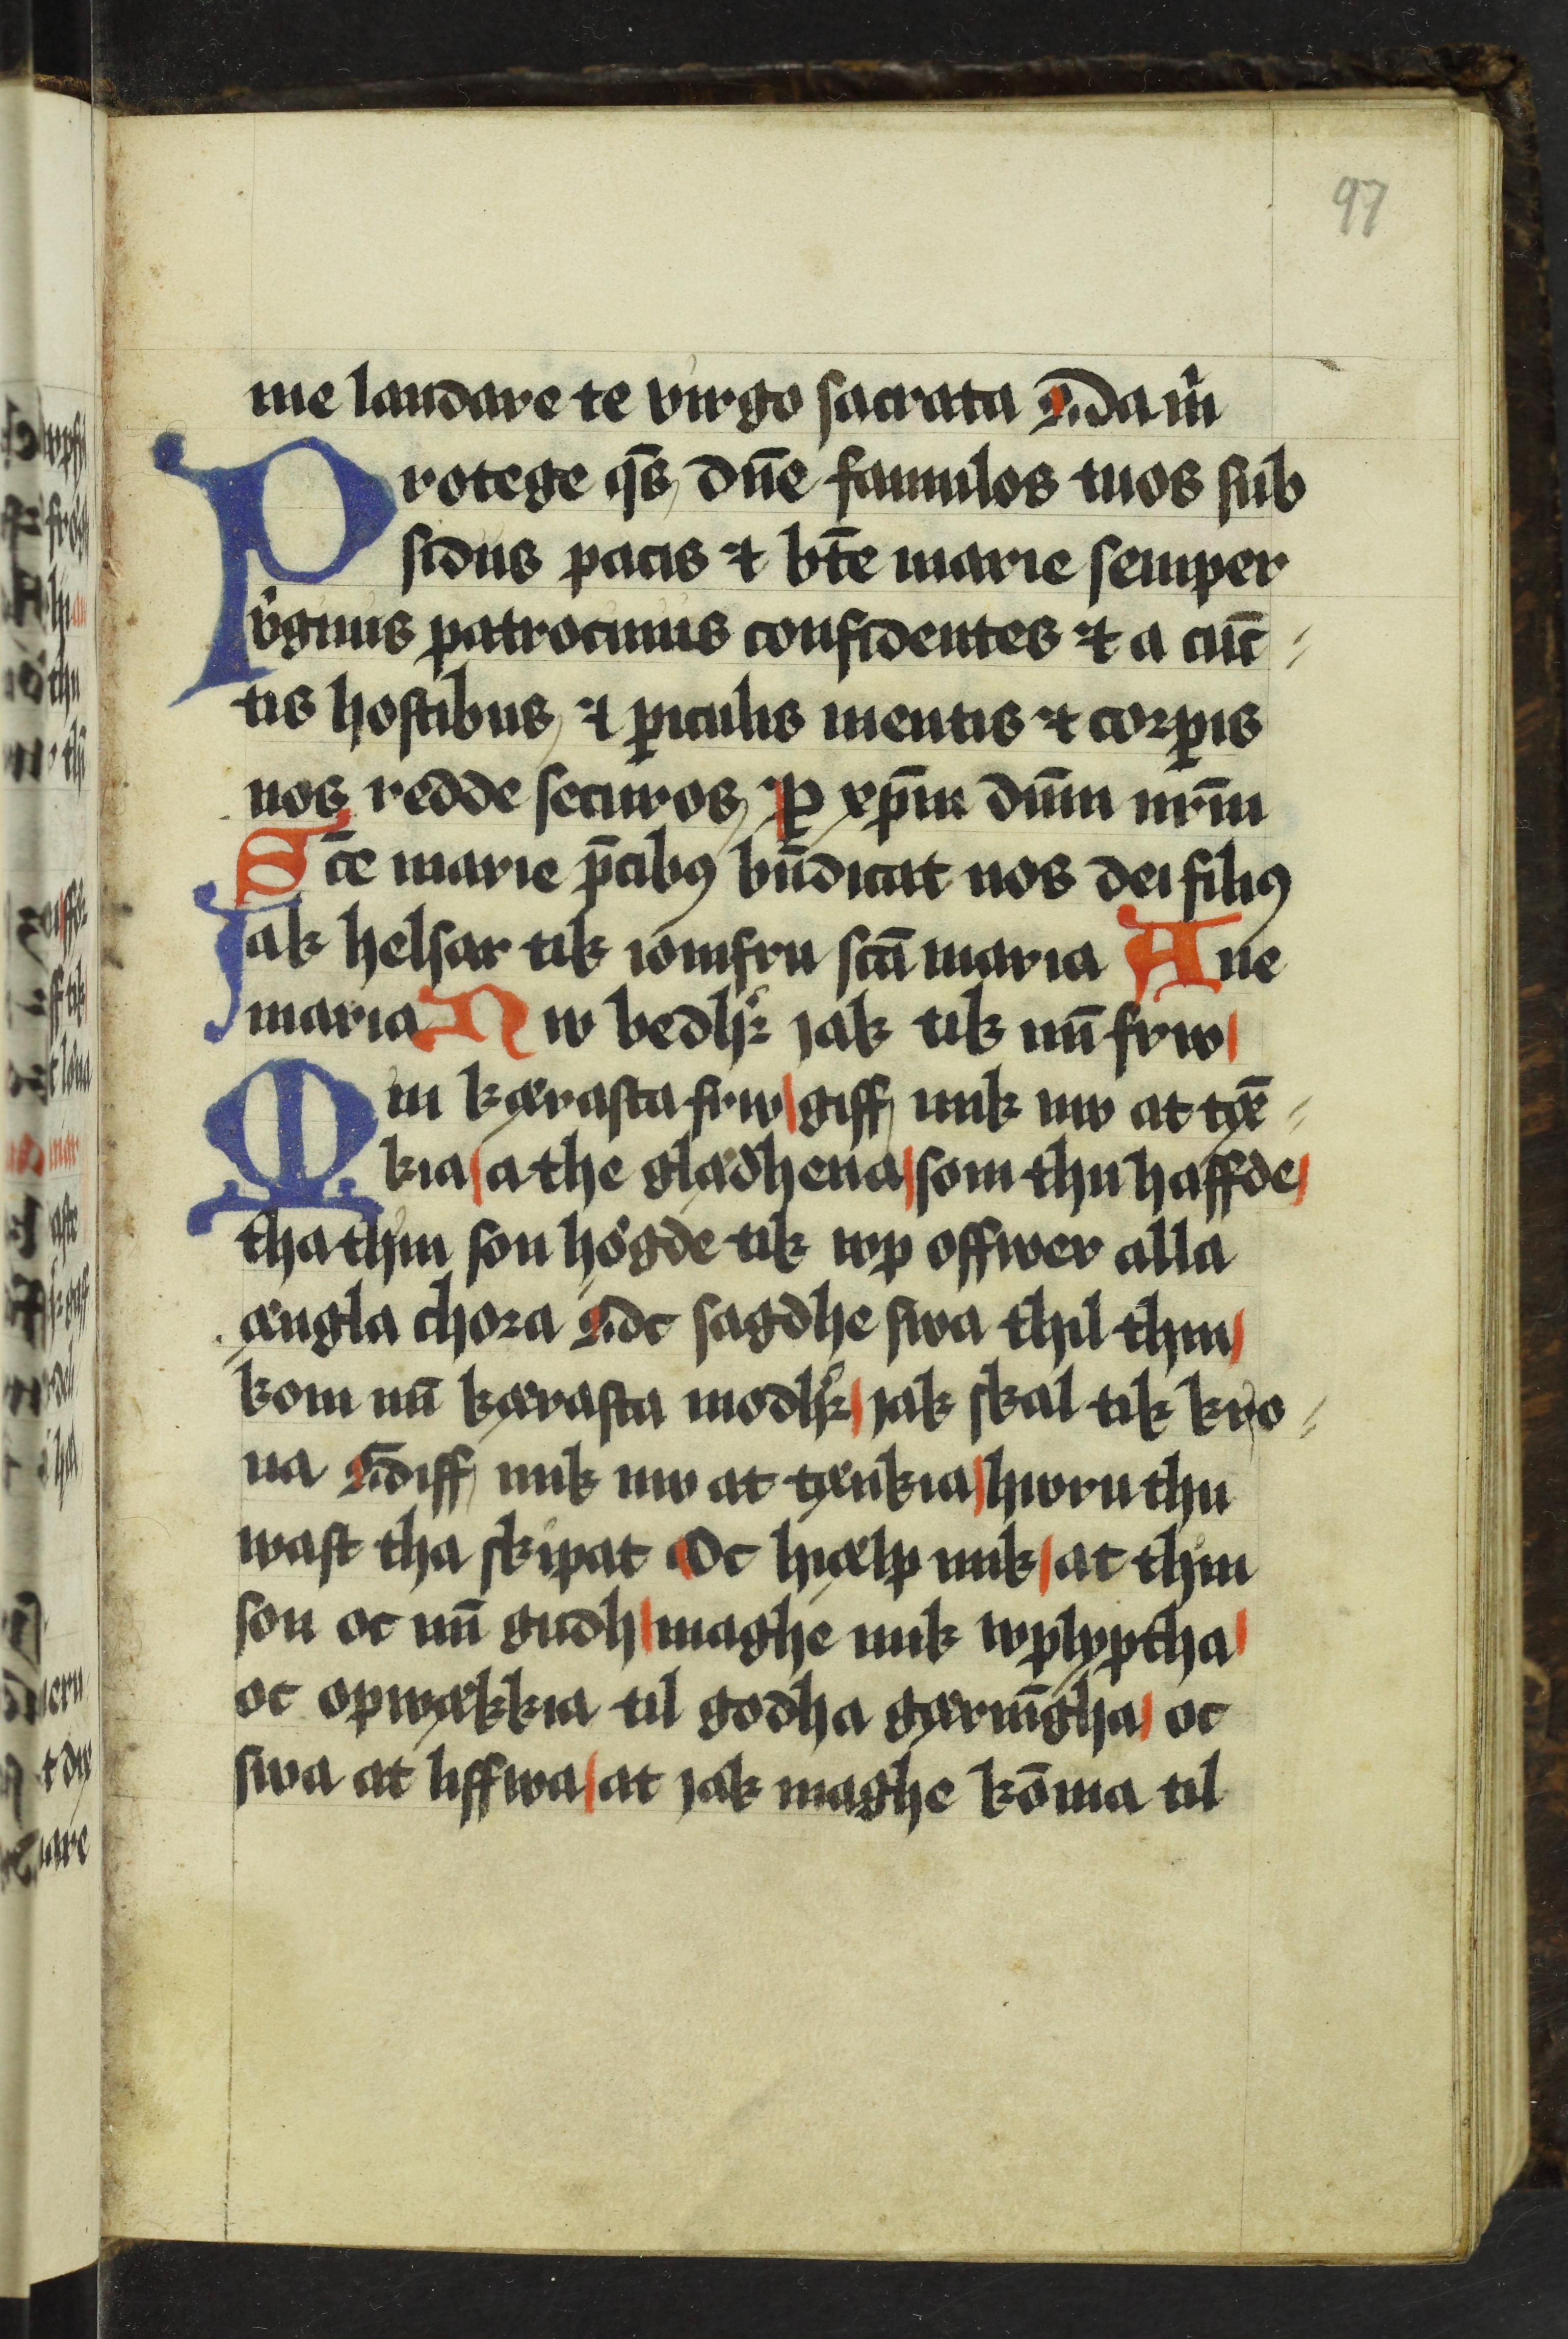 97
me laudare te virgo sacrata Da m̅
Protege q̅s dn̅e famulos tuos sub
sidiis pacis ⁊ bt̅e marie semper
v̛ginis patrociniis confidentes ⁊ a cūc
tis hostibus ⁊ ꝑiculis mentis ⁊ corꝑis
nos redde securos ꝑ xp̅m dn̅m nr̅m
Sc̅e marie p̅cibꝰ bn̅dicat nos dei filiꝰ
Jak helsar tik iomfru sc̅a maria Aue
maria Nw bedhꝛ̛ jak tik mī frw
Min kærasta frw giff mik nw at tæ̅
kia a the glædhena som thu haffde
tha thin son högde tik wp offwer alla
ængla chora Oc sagdhe swa thil thin
kom mī kærasta modhꝛ̛ jak skal tik kro
na Giff mik nw at tænkia hwru thu
wast tha skipat Oc hiælp mik at thin
son oc mī gudh maghe mik wplyptha
oc opwækkia til godha gærnīgha oc
swa at liffwa at jak maghe kōma til